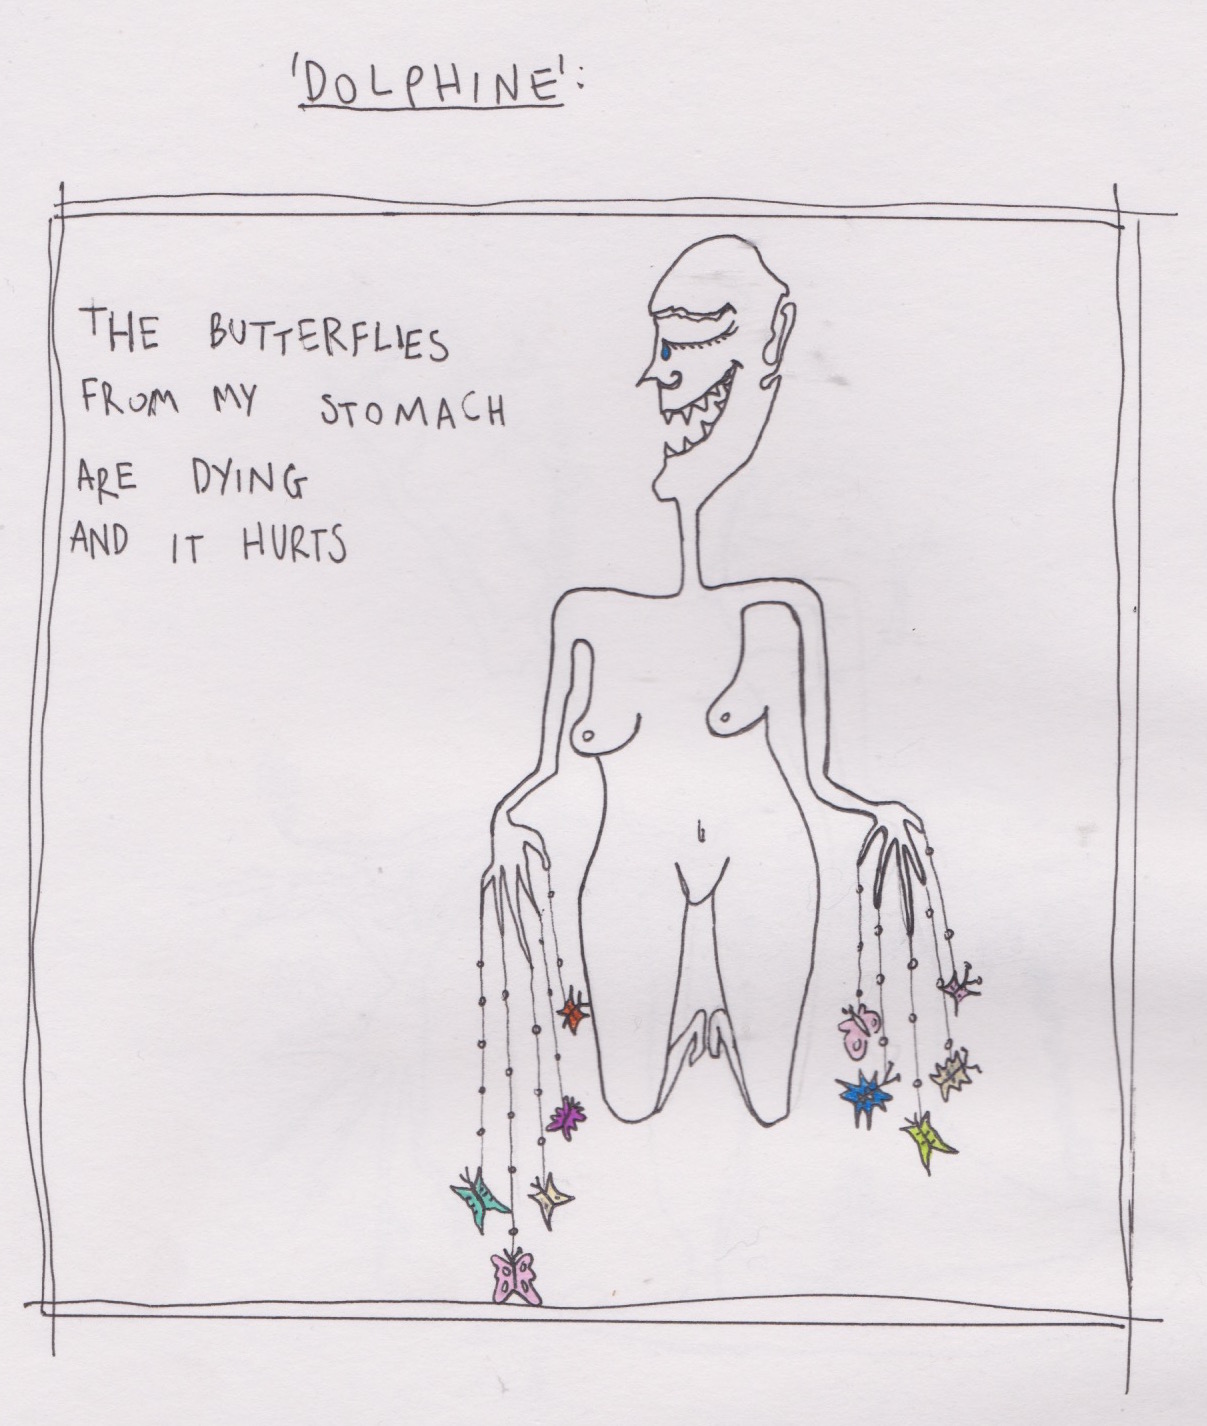 'DOLPHINE':
THE BUTTERFLIES
FROM MY STOMACH
ARE DYING
AND IT HURTS